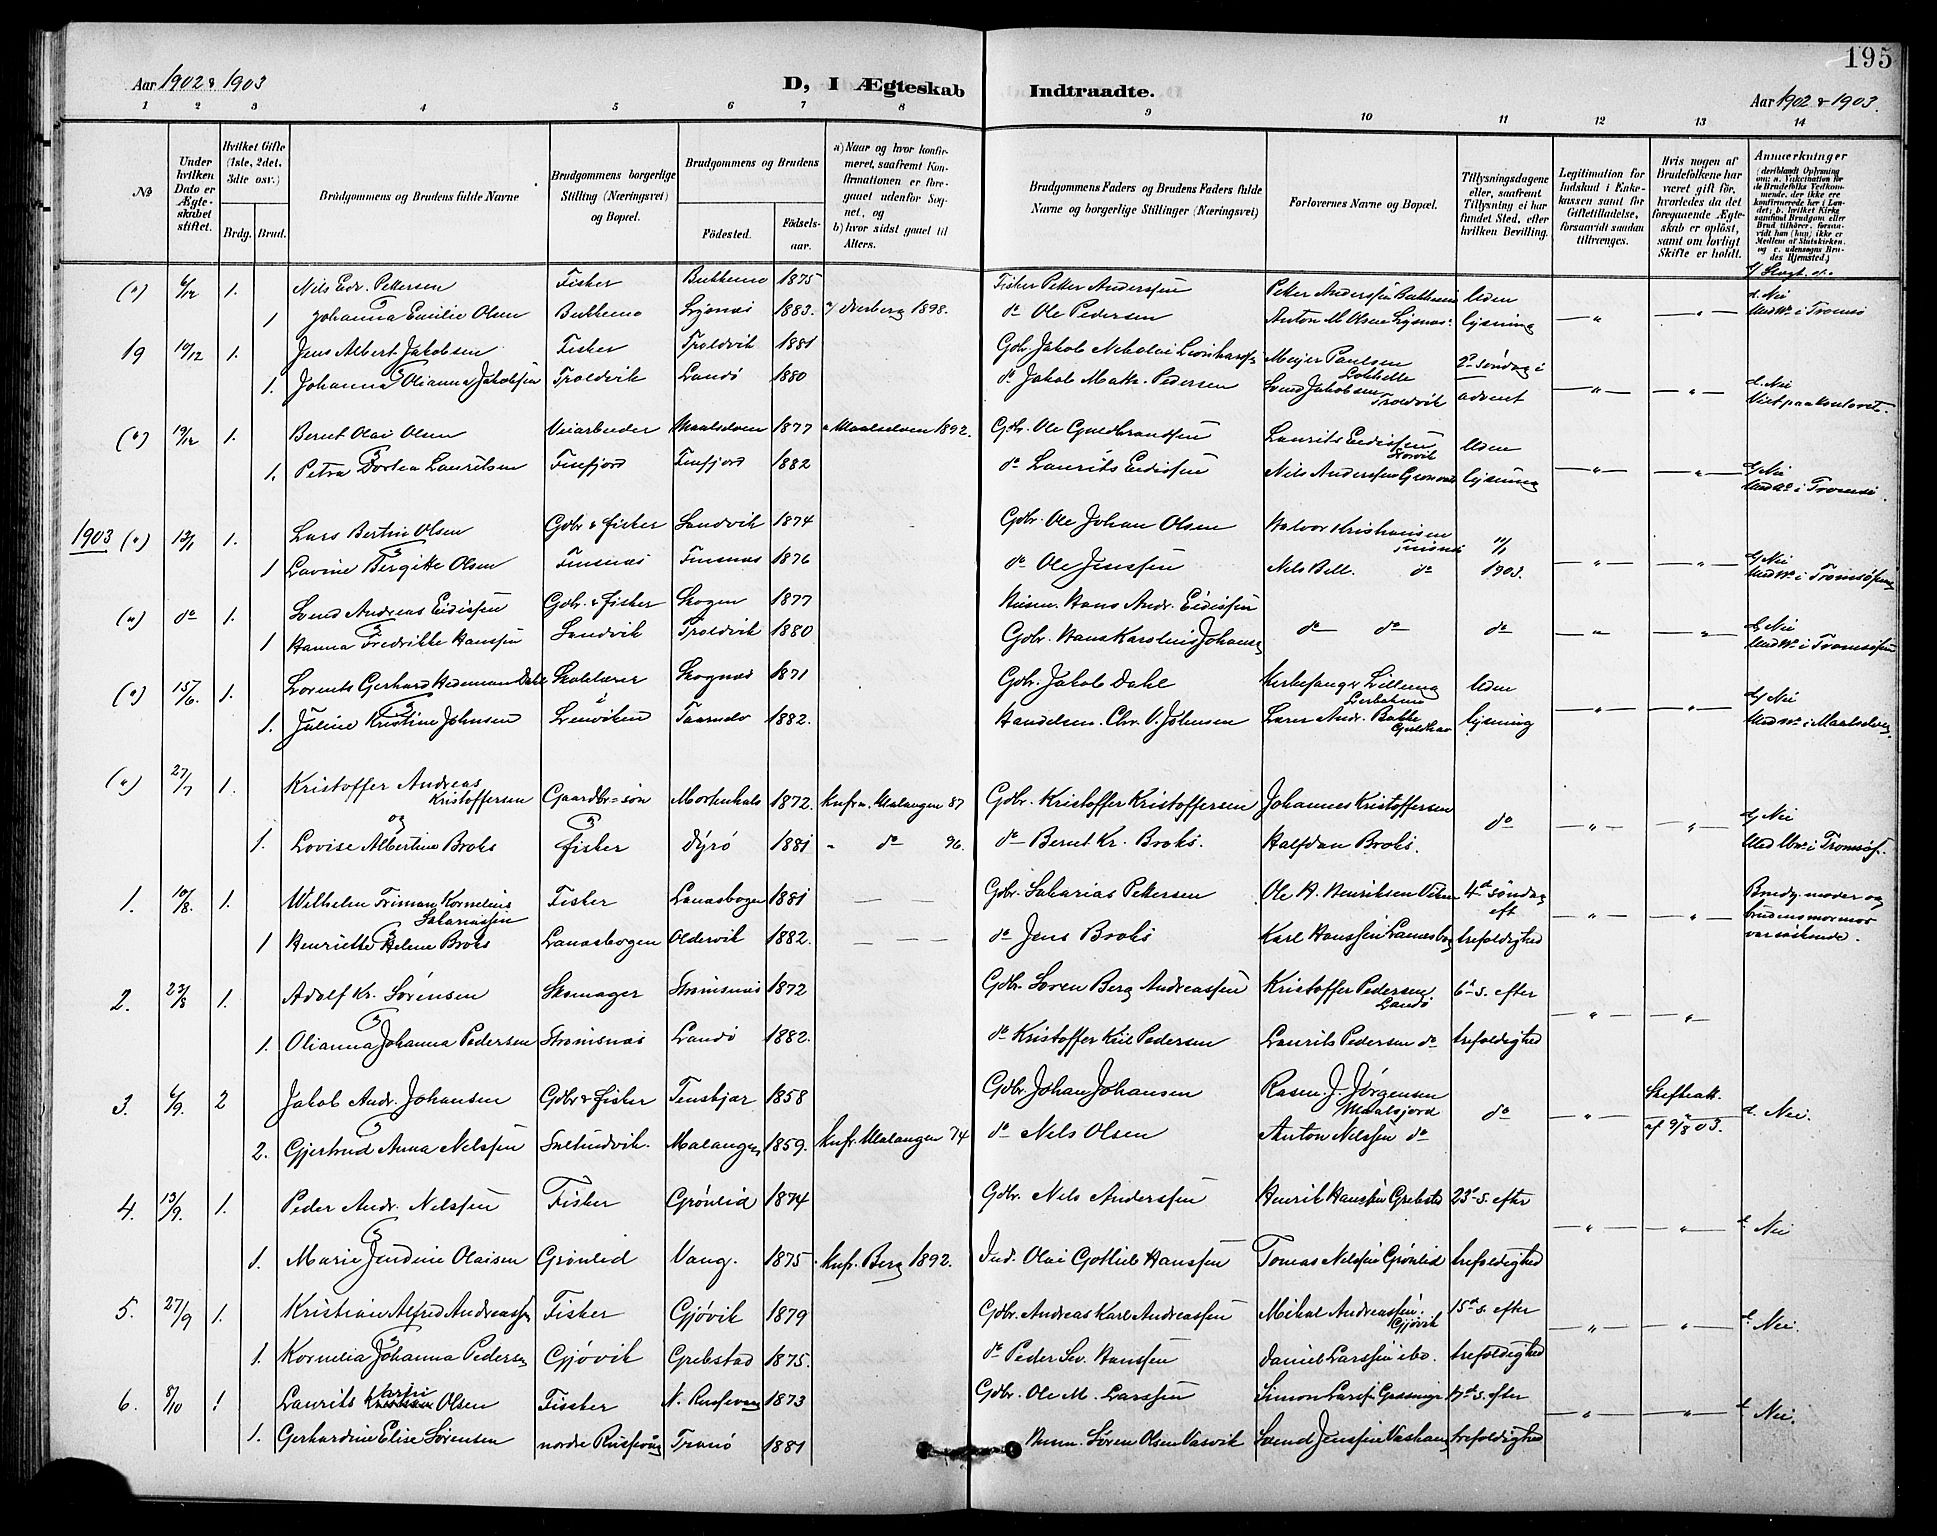 195
Aar 1902 & 1903
D, I Ægteskab
Indtraadte.
Aar 1902 & 1903.
1 2 3 4 5 6 7 8 9 10 11 12 13 14
№
Under hvilken Dato er Ægteskabet stiftet.
Hvilket Gifte (1ste, 2det, 3die osv.)
Brdg. Brud.
Brudgommens og Brudens fulde Navne
Brudgommens borgerlige Stilling (Næringsvei) og Bopæl.
Brudgommens og Brudens
Fødested. Fødselsaar.
a) Naar og hvor konfirmeret, saafremt Konfirmationen er foregaaet udenfor Sognet, og
b) hvor sidst gaaet til Alters.
Brudgommens Faders og Brudens Faders fulde Navne og borgerlige Stillinger (Næringsvei)
Forlovernes Navne og Bopæl.
Tillysningsdagene eller, saafremt Tillysning ei har fundet Sted, efter hvilken Bevilling.
Legitimation for Indskud i Enkekassen samt for Giftetilladelse, forsaavidt saadan tiltrænges.
Hvis nogen af Brudefolkene har været gift før, hvorledes da det foregaaende Ægteskab er opløst, samt om lovligt Skifte er holdt.
Anmerkninger (deriblandt Oplysning om: a. Vakcination for de Brudefolks Vedkommende, der ikke ere konfirmerede her i Landet; b. hvilket Kirkesamfund Brudgom eller Brud tilhører, forsaavidt han (hun) ikke er Medlem af Statskirken, og c. udensogns Brudes Hjemsted.)
(") 6/12 1. Nils Edv. Pettersen Fisker 1875 Fisker Petter Anderssen Uden
1 Johanna Emilie Olsen Lysnes 1883. 1898. do Ole Pedersen Anton M. Olsen Lysnes. lysning — " — — " — d. Nei
19 10/12 1. Jens Albert Jakobsen Fisker Troldvik 1881 Gdb. Jakob Nikolai Meyer Paulsen 2' søndag i
1. Johanna Olianna Jakobsen Troldvik Sandø 1880 do Jakob Math. Pedersen Svend Jakobsen Troldvik advent — " — — " — d. Nei
(") 19/12 1. Bernt Olai Olsen Veiarbeider Maalselven 1877 a Maalselven 1892. Gdb. Ole Guldbrandsen Laurits Eidissen Uden
1. Petra Dortea Lauritsen Finfjord Finfjord 1882 do Laurits Eidissen Nils Anderssen lysning — " — — " — Nei
1903 (") 13/1 1. Lars Bertin Olsen Gdbr & fisker Sandvik 1874 Gdbr. Ole Johan Olsen Halvor Kristiansen 11/1
1 Lovine Bergitte Olsen Finsnes Finsnes 1876 do Ole Jenssen Nels Bell. do 1903. — " — — " — Nei
(") do 1. Svend Andreas Eidissen Gdbr. & fisker Skogen 1877 Husm. Hans Andr. Eidissen
1 Hanna Fredrikke Hanssen Sandvik Troldvik 1880 Gdbr. Hans Karolius Johans do do do — " — — " — Nei
(") 15/6. 1. Lorents Gerhard Hedeman Dahl Skolelærer Skognes 1871 Gdbr. Jakob Dahl Kirkesanger Lilleng Uden
1. Juline Kristine Johnsen Lenviken 1882. Handelsm. Chr. V. Johnsen Lærer Andr. Bakke lysning — " — — " — Nei
(") 27/7 1. Kristoffer Andreas Kristoffersen Gaardbr-søn Mortenhals 1872. Knfr. Malangen 87 Gdbr. Kristoffer Kristoffersen Johannes Kristoffersen
og
1. Lovise Albertine Broks fisker Dyrø 1881 " do 96. do Bernt Kr. Broks. Halfdan Broks. do — " — — " — Nei
1. 10/8. 1. Wilhelm Kornelius Sakariassen Fisker Lanesbogen 1881 — — — Gdbr. Sakarias Pettersen Ole H. Henriksen 4de søndag Brudg. moder og
1 Henriette Helene Broks Lanesbogen Oldervik 1882. — — — do Jens Broks Karl Hanssen eft trefoldighed — " — — " — brudens mormor var søskende.
2. 23/8 1. Adolf Kr. Sørensen Skomager Strømsnes 1872 Gdbr. Søren Berg Andreassen Kristoffer Pedersen Sandø 6' s. efter
1. Olianna Johanna Pedersen Strømsnes Sandø 1882. do Kristoffer Kiil Pedersen Laurits Pedersen do trefoldighed — " — — " —
3. 6/9. 2 Jakob Andr. Johansen Gdbr & fisker Finskjær 1858 Gdbr. Johan Johansen Rasm. J. Jørgensen Skifteatt.
2. Gjertrud Anna Nelssen Malangen 1859. Knfr. Malangen 74 do Nels Olsen Anton Nelssen do do — " — af 9/8 03. d. Nei.
4. 13/9. 1. Peder Andr. Nelssen Fisker Grønlid 1874 Gdbr. Nels Anderssen Henrik Hanssen Grebstd 23' s. efter
1. Marie Jendine Olaisen Grønlid Vang. 1875. Knfr. Berg 1892. Ind. Olai Gotlieb Hanssen Tomas Nelssen Grønlid trefoldighed — " — — " — Nei
5. 27/9 1. Kristian Alfred Andreassen Fisker Gjøvik 1879 Gdbr. Andreas Karl Andreassen Mikal Andreassen. Gjøvik 15de s. efter
1. Kornelia Johanna Pedersen Gjøvik Grebstad 1875. do Peder Sev. Hanssen Daniel Larssen ibo. trefoldighed — " — — " — Nei.
6. 8/10 1 Laurits Olsen Fisker 1873 Gdbr. Ole M. Larssen Simon Larss. 17de s. efter
1. Gerhardine Elise Sørensen nordre Tranø 1881 Husm. Søren Olsen Vasvik Svend Jenssen trefoldighed — " — — " — Nei.